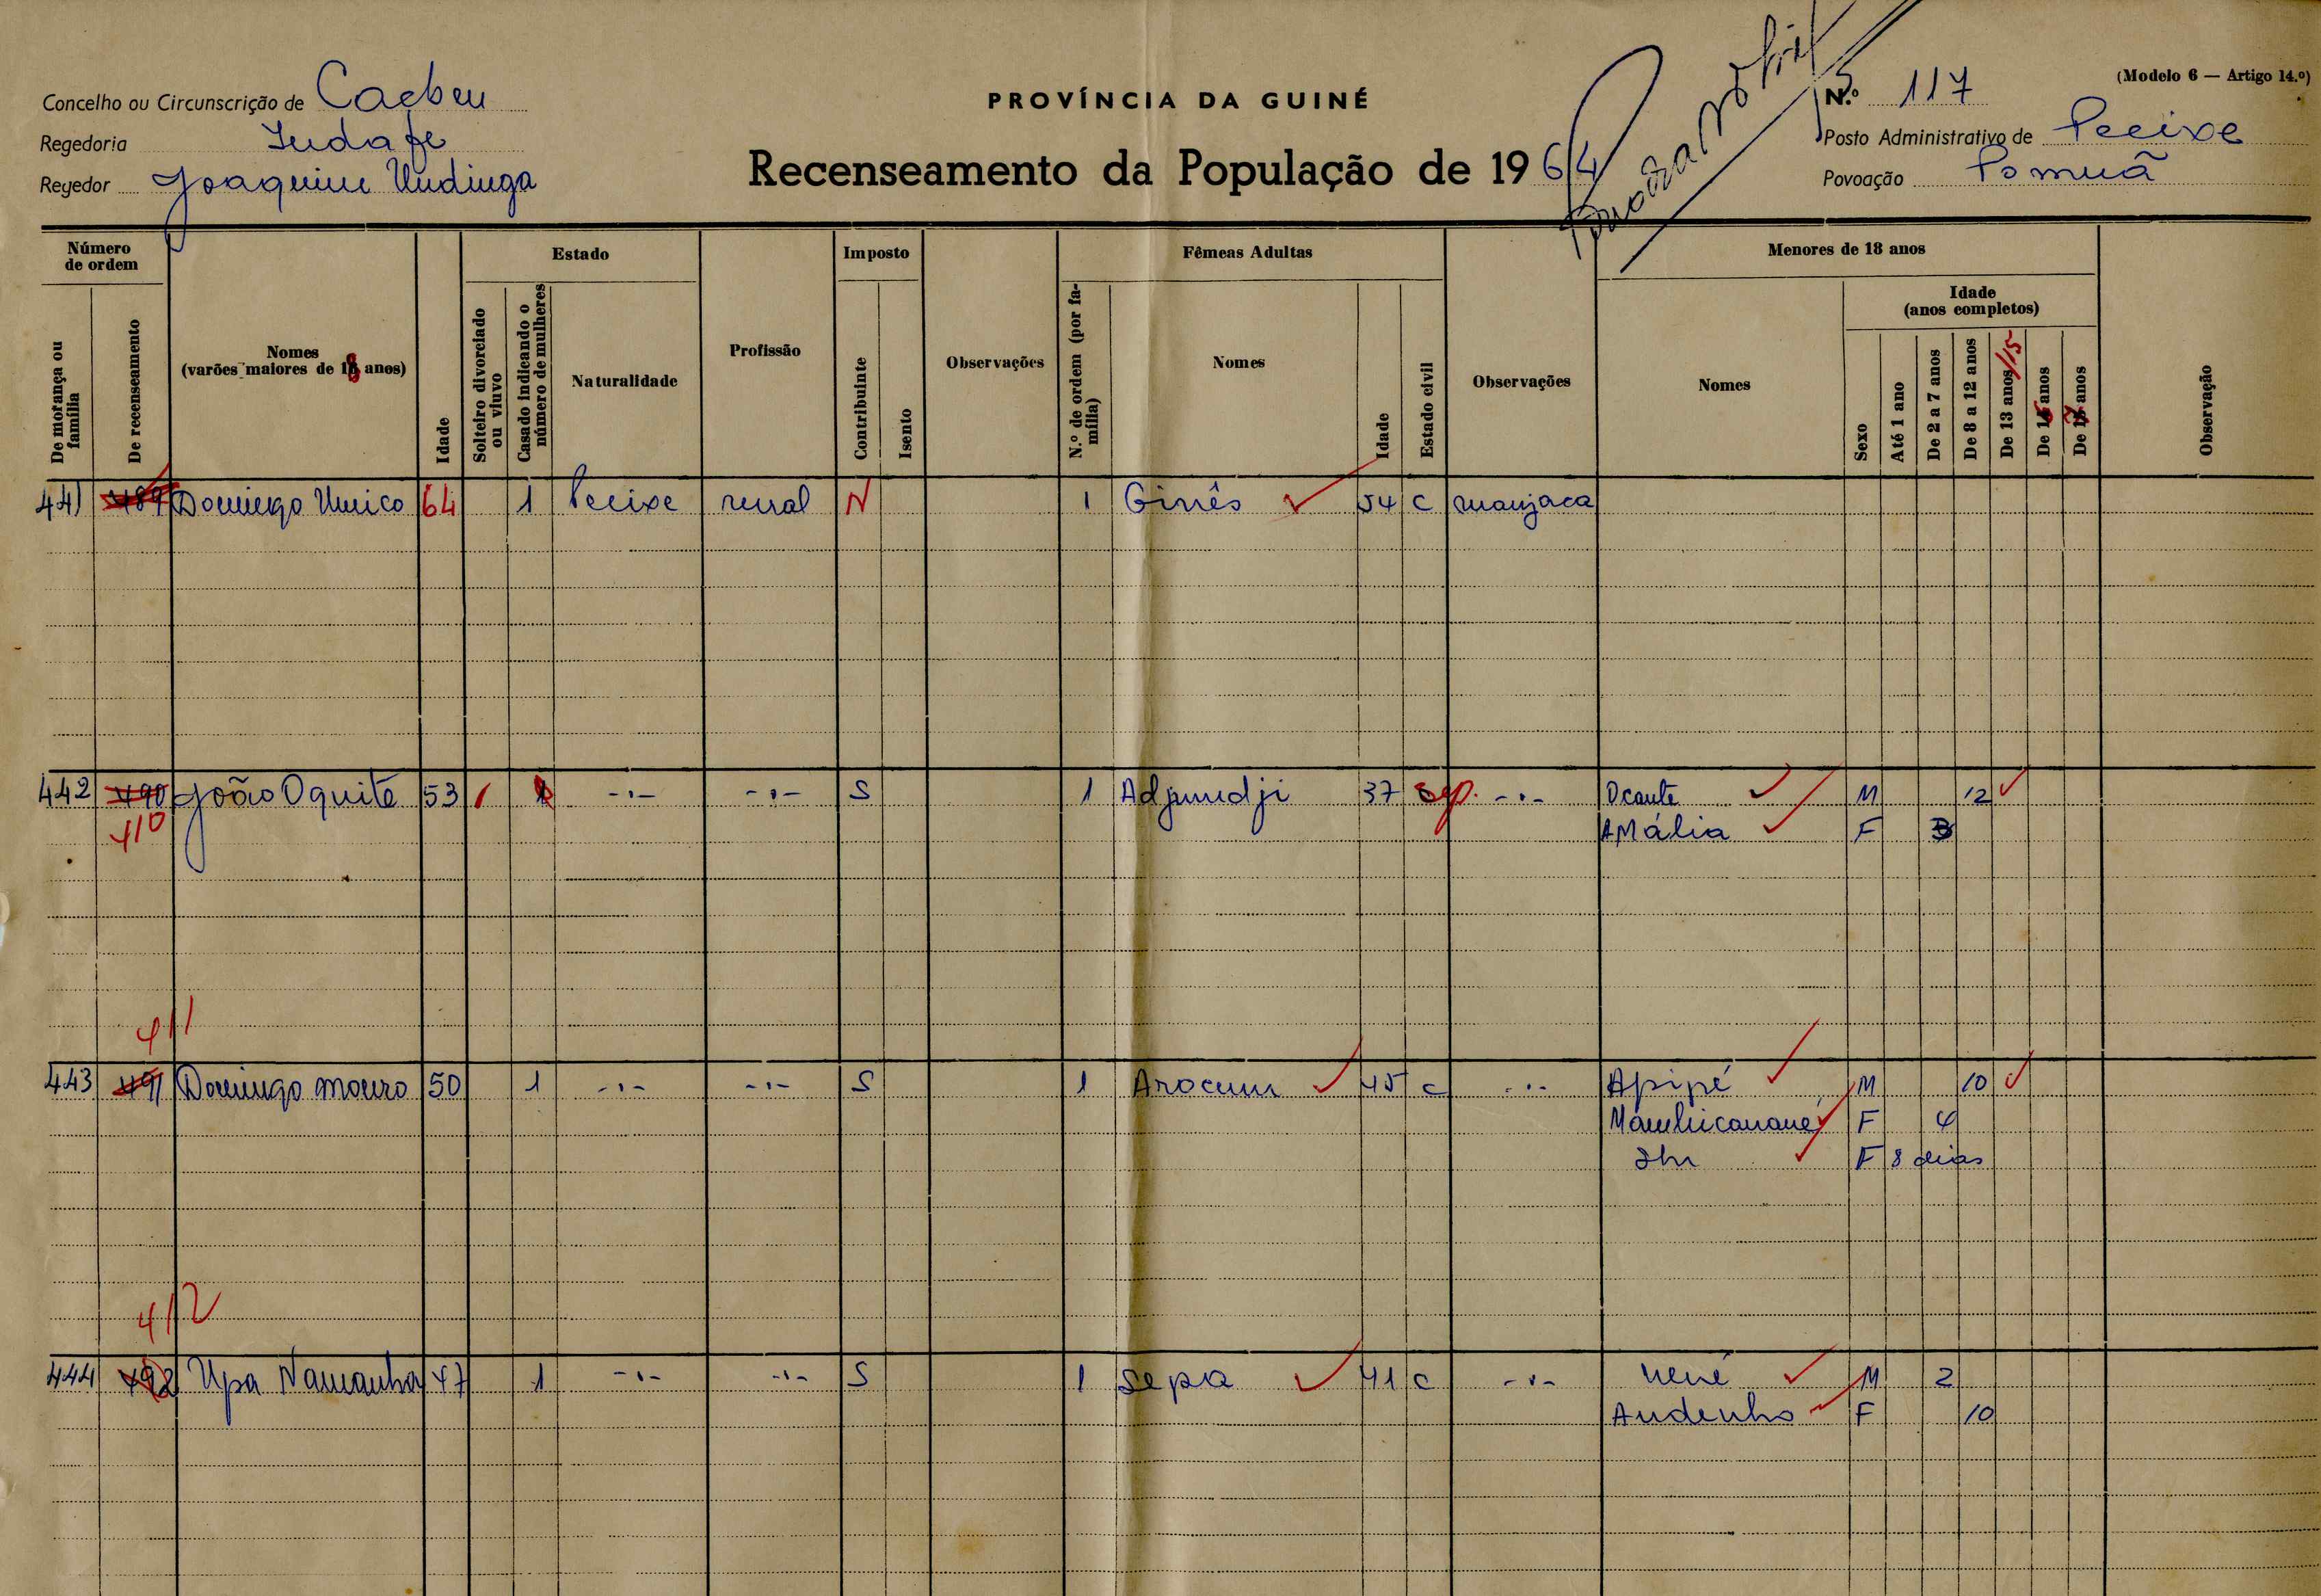 (Modelo 6 — Artigo 14.º)
Concelho ou Circunscrição de Cacheu
PROVÍNCIA DA GUINÉ
N.º 117
Regedoria Indafe
Posto Administrativo de Pecixe
Recenseamento da População de 1964
Regedor Joaquim Undinga
Povoação Pomuã
Número de ordem
Estado
Imposto
Fêmeas Adultas
Menores de 18 anos
De morança ou família
De recenseamento
Nomes
(varões maiores de 18 anos)
Idade
Solteiro divorciado ou viuvo
Casado indicando o número de mulheres
Naturalidade
Profissão
Contribuinte
Isento
Observações
N.º de ordem (por família)
Nomes
Idade
Estado civil
Observações
Nomes
Sexo
Idade
(anos completos)
Até 1 ano
De 2 a 7 anos
De 8 a 12 anos
De 13 anos /15
De 16 anos
De 17 anos
Observação
441 489 Domingo Unico 64 1 Pecixe rural N 1 Ginês 54 c manjaca
442 490 João Oquite 53 1 -·- -·- S 1 Adjumdji 37 sep. -·- Ocante M 12
410 AMália F 3
411
443 491 Domingo mouro 50 1 -·- -·- S 1 Arocum 45 c -·- Apipé M 10
F 4
F 8 dias
412
444 492 Upa Namanha 47 1 -·- -·- S 1 Sepa 41 c -·- nené M 2
Audenho F 10